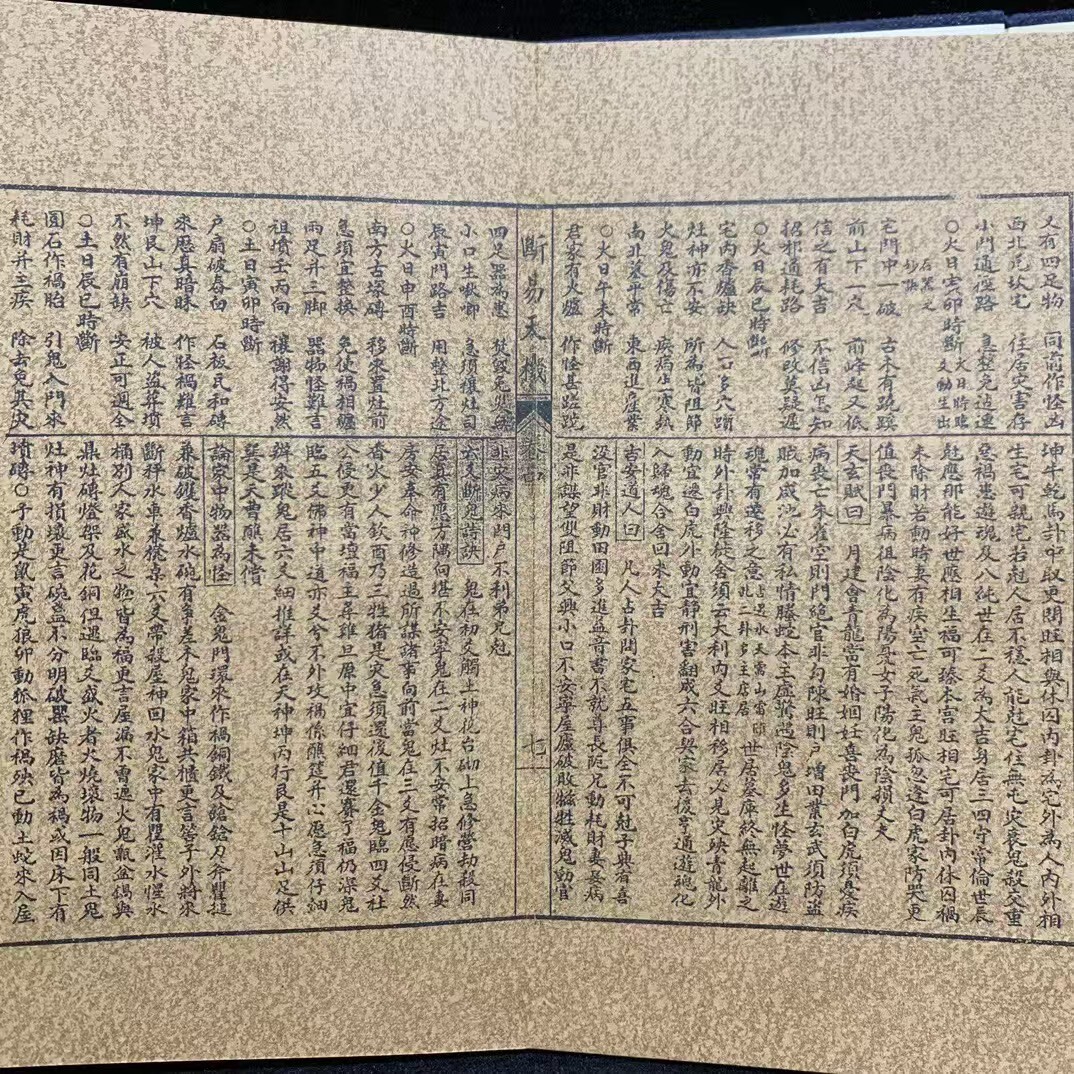 又有四足物 同前作怪凶
西北厄坎宅 住居災害存
小門通徑路 急整免迍邅
○火日亥卯時斷 火日時臨
宅門中一破 古木有
前山下一穴 前峰起又低
信之有大吉 不信凶怎知
招邪通耗路 修改莫疑遲
○火日辰巳時斷
宅內香爐缺 人口多穴蹭
灶神亦不安 所為皆阻節
火鬼及傷亡 疾病生寒熱
南北墓平常 東西進產業
○火日午未時斷
君家有火爐 作怪甚蹉跎
坤牛乾馬卦中取更問旺相與休囚內卦為宅外為人內外相
生宅可親宅若尅人居不穩人能尅宅住無屯災衰鬼殺交重
惡禍患遊魂及八純世在二爻為大吉身居三四守常倫世辰
尅應那能好世應相生福可臻本宮旺相宅可居卦內休囚禍
未除財若動時妻有疾空亡死氣主鬼孤忽逢白虎家防哭更
值喪門暴病徂陰化為陽憂女子陽化為陰損丈夫
天玄賦曰 月建會青龍當有婚姻妊喜喪門加白虎須忌疾
病喪亡朱雀空則門絕官非勾陳旺則戶增田業玄武須防盜
賊加咸池必有私情騰蛇本主虛驚遇陰鬼多生怪夢世在遊
魂常有遷移之意 世居墓庫終無起離之
時外卦興隆徙舍須云大利內爻旺相移居必見災殃青龍外
動宜遷白虎外動宜靜刑害翻成六合契家去後亨通遊魂化
入歸魂合舍回來大吉
吉安道人曰 凡人占卦問家宅五事俱全不可尅子興者喜
沒官非財動田園多進益音書不就尊長阨兄動耗財妻妾病
是非謀望雙阻節父興小口不安寧屋廬破敗犧牲滅鬼動官
斷易天機
七
四足器為患 焚毀免
小口生啾唧 急須禳灶司
辰寅門路吉 用整北方途
○火日申酉時斷
南方古塚磚 移來置灶前
急須宜整換 免使禍相纏
兩足并三脚 器物怪難言
祖墳壬丙向 禳謝得安然
○土日寅卯時斷
戶扇破舂臼 石板瓦和磚
來歷真暗昧 作怪禍難言
坤艮山下穴 被人盜葬墳
不然有崩缺 安正可週全
○土日辰巳時斷
圓石作禍胎 引鬼入門來
耗財并主疾 除者免其災
非火病來門戶不利弟兄尅
云爻斷鬼詩訣 鬼在初爻觸土神花台砌上急修營劫殺同
居真有應方隅向堪不安寧鬼在二爻灶不安常招暗病在妻
房安奉命神修造過所謀諸事向前當鬼在三爻有應侵斷然
香火少人欽酉乃三牲猪是亥急須還後值千金鬼臨四爻社
公侵更有當壇福主尋雞旦原中宜仔細君還賽了福仍深鬼
臨五爻佛神中道亦爻兮不外攻禍係醮筵并心愿急須仔細
辦來蹤鬼居六爻細推詳或在天神坤丙行艮是十山山足供
巽是天曹醮未償
論家中物器為怪 金鬼門環來作禍銅鐵及鎗鎗刀斧鑼搥
兼破鑊香爐水碗有爭差木鬼家中箱共櫃更言筦子外將來
斷秤水車兼櫈桌六爻帶殺屋神回水鬼家中有甖灌水埕水
桶別人家盛水之物皆為福更言屋漏不曾遮火鬼甑盆鍋與
鼎灶磚燈架及花銅但逃臨爻盛火者火燒壞物一般同土鬼
灶神有損壞更言碗盞不分明破器缺磨皆為禍或因床下有
墳磚○子動是鼠寅虎狼卯動狐狸作禍殃巳動土蛇來入屋